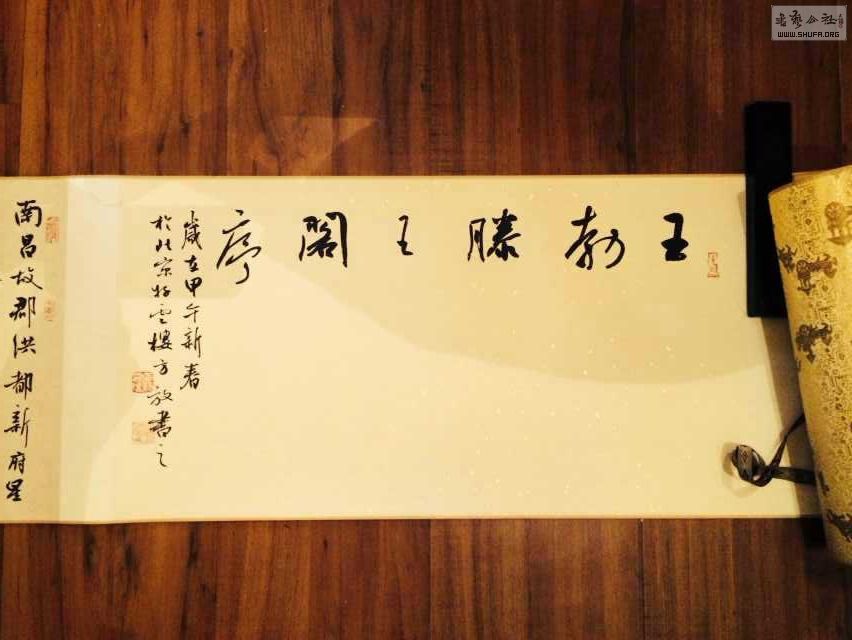 王勃滕王阁序
歲在甲午新春
於北京好雲樓方放書之
南昌故郡洪都新府星
書藝公社
WWW.SHUFA.ORG